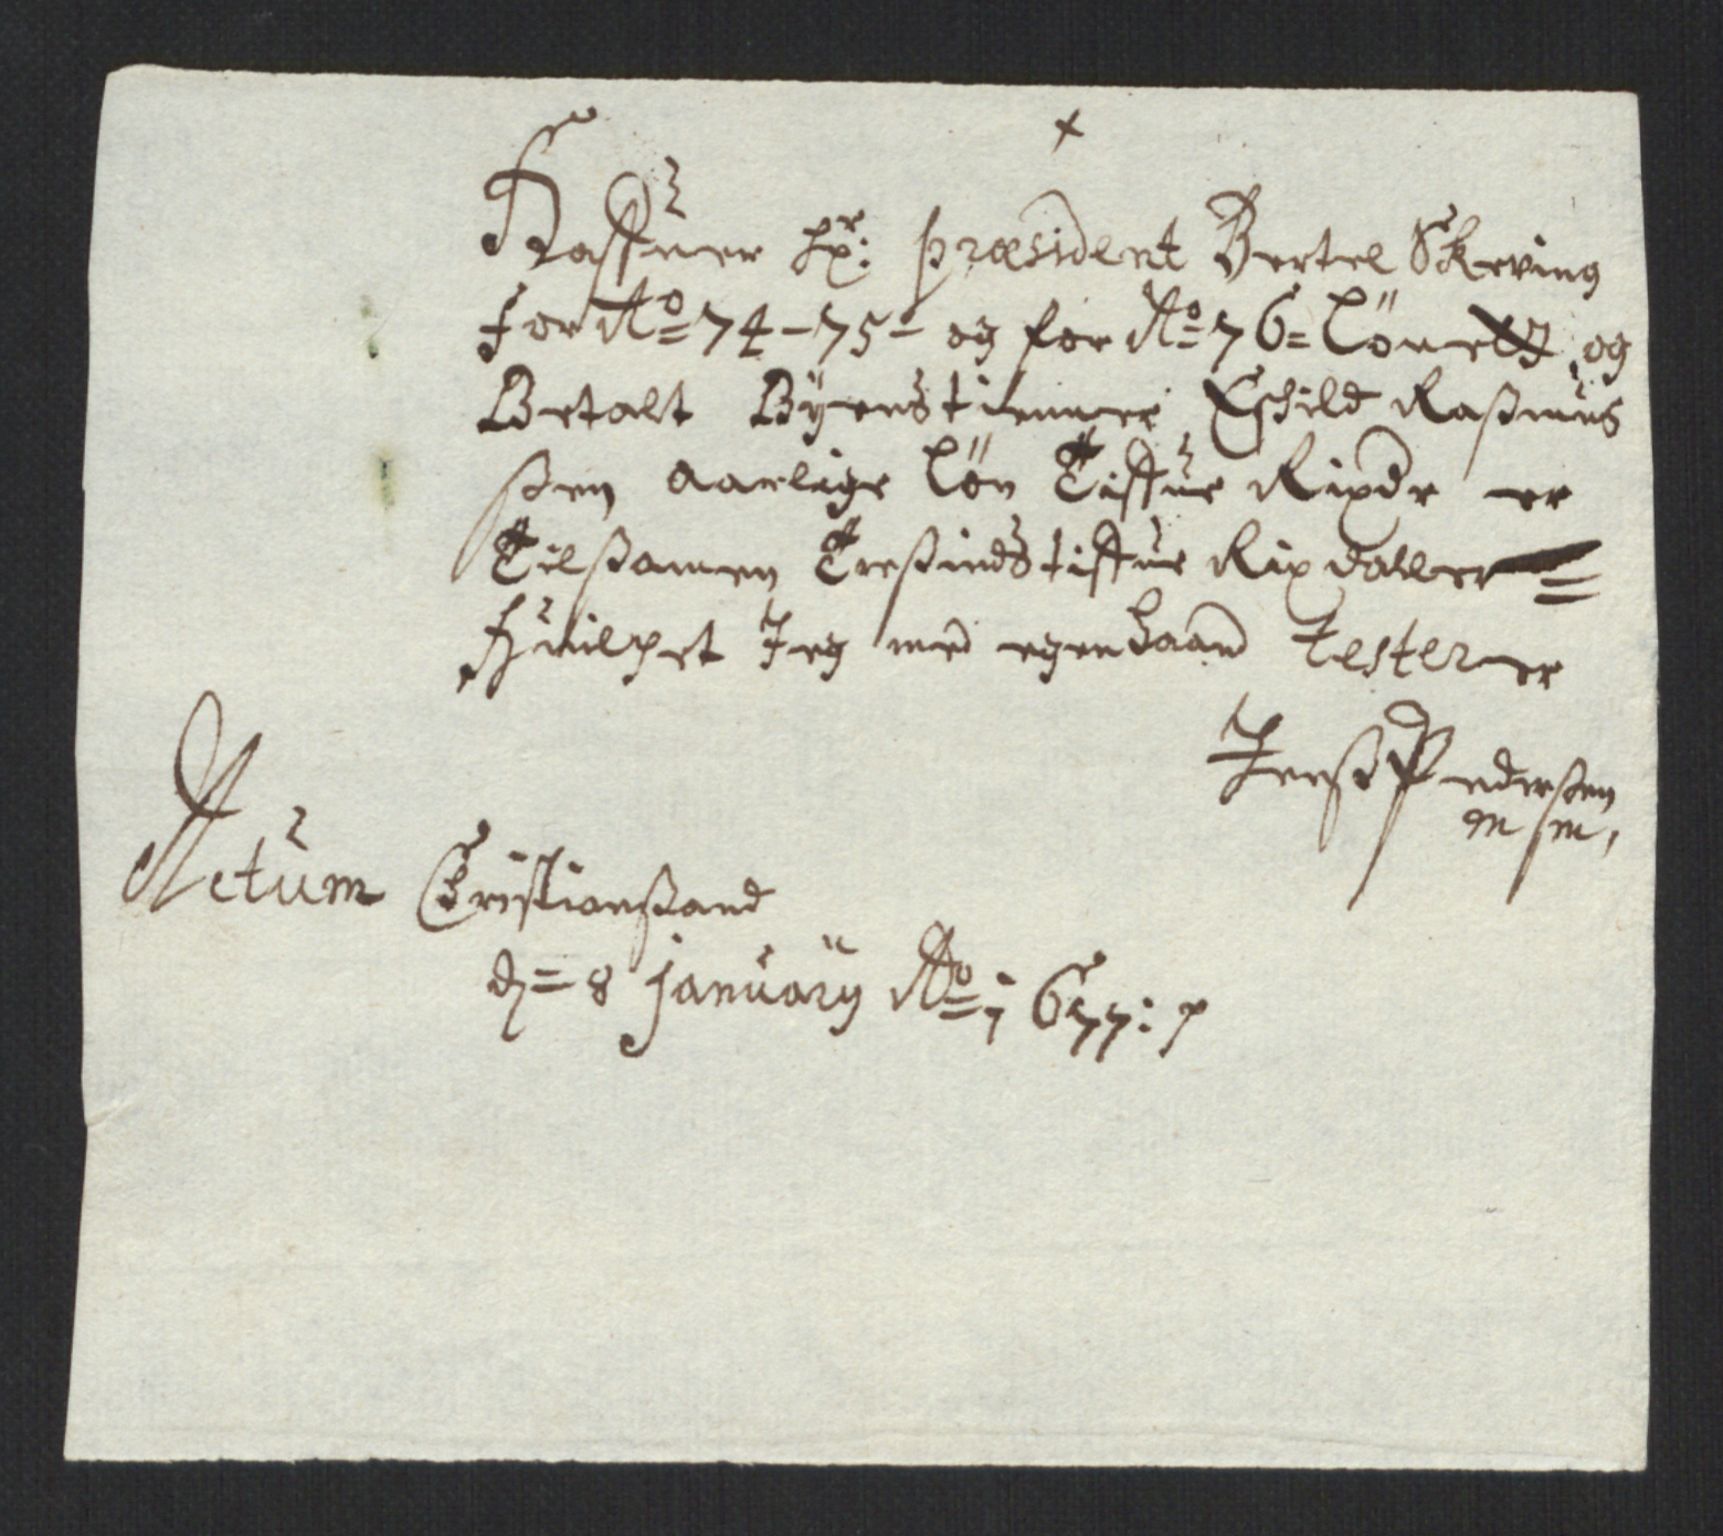 +
Haffuer hr: præsident Bertel Skeving
for Ao= 74-75- og for Ao= 76= Löenett og
Betalt Byenstienner Eschild Raßmus
ßen aarlige Lön Tiffue Rixdr er
Tilßamen Treßindstiffue Rixdaller =
Huilchet Jeg med egenhaand testerer
Jenß Pederßen
m m,
Actum Christianßand
d= 8 januarij Ao= 1677: